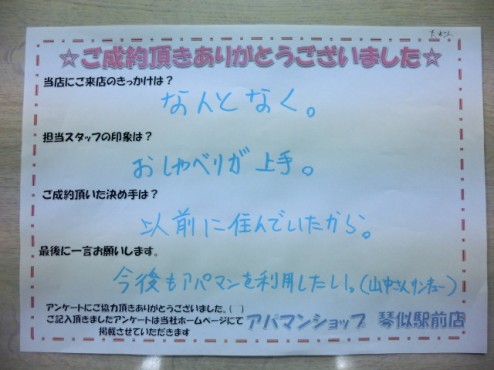 ☆ご成約頂きありがとうございました☆
当店にご来店のきっかけは？
なんとなく。
担当スタッフの印象は？
おしゃべりが上手。
ご成約頂いた決め手は？
以前に住んでいたから。
最後に一言お願いします。
今後もアパマンを利用したい。(山中さんサンキュー)
アンケートにご協力頂きありがとうございました。(^^)
ご記入頂きましたアンケートは当社ホームページにて
掲載させていただきます
アパマンショップ 琴似駅前店